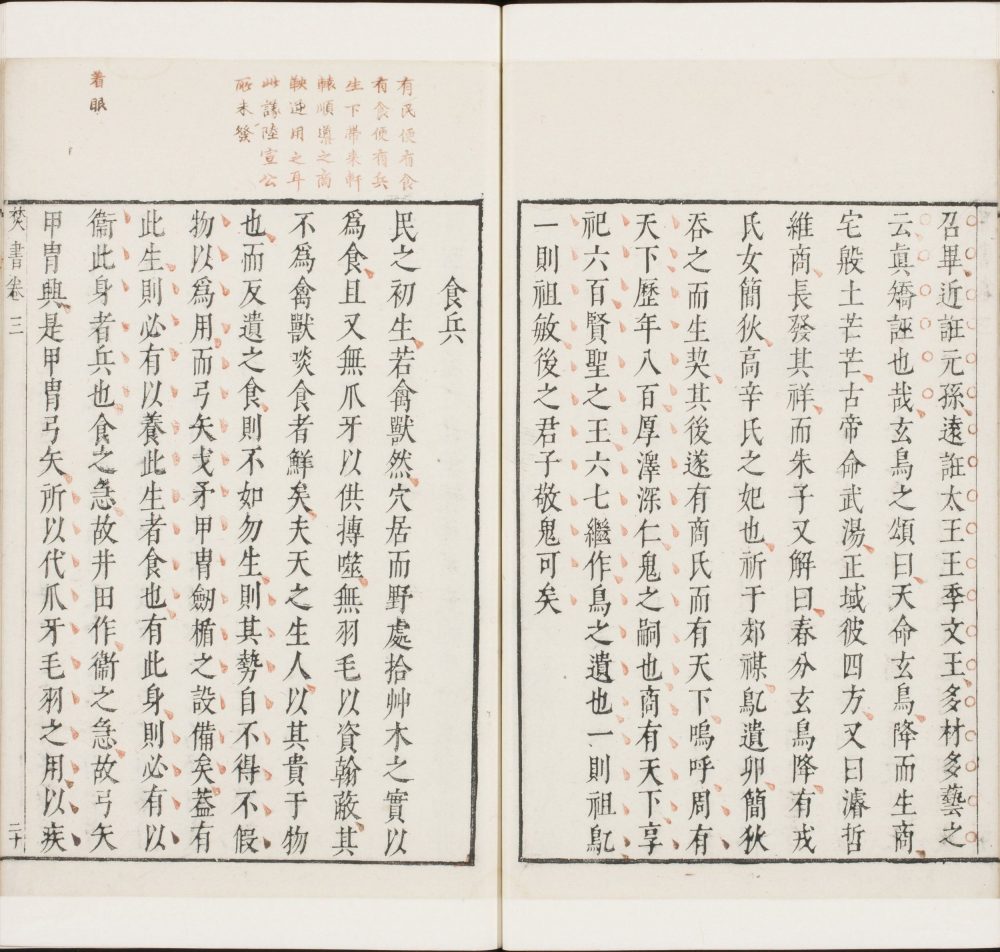 召畢近誑元孫遠誑太王王季文王多材多藝之
云眞矯誣也哉玄鳥之頌曰天命玄鳥降而生商
宅殷土芒芒古帝命武湯正域彼四方又曰濬哲
維商長發其祥而朱子又解曰春分玄鳥降有戎
氏女簡狄高辛氏之妃也祈于郊禖鳦遺卵簡狄
吞之而生契其後遂有商氏而有天下嗚呼周有
天下歷年八百厚澤深仁鬼之嗣也商有天下享
祀六百賢聖之王六七繼作鳥之遺也一則祖鳦
一則祖敏後之君子敬鬼可矣
有民便有食
有食便有兵
生下帶来軒
轅順導之商
鞅逆用之耳
此議陸宣公
所未發
着眼
食兵
民之初生若禽獸然穴居而野處拾艸木之實以
爲食且又無爪牙以供搏噬無羽毛以資翰蔽其
不爲禽獸啖食者鮮矣夫天之生人以其貴于物
也而反遺之食則不如勿生則其勢自不得不假
物以爲用而弓矢戈矛甲冑劒楯之設備矣葢有
此生則必有以養此生者食也有此身則必有以
衞此身者兵也食之急故井田作衞之急故弓矢
甲冑興是甲冑弓矢所以代爪牙毛羽之用以疾
焚書卷三
二十